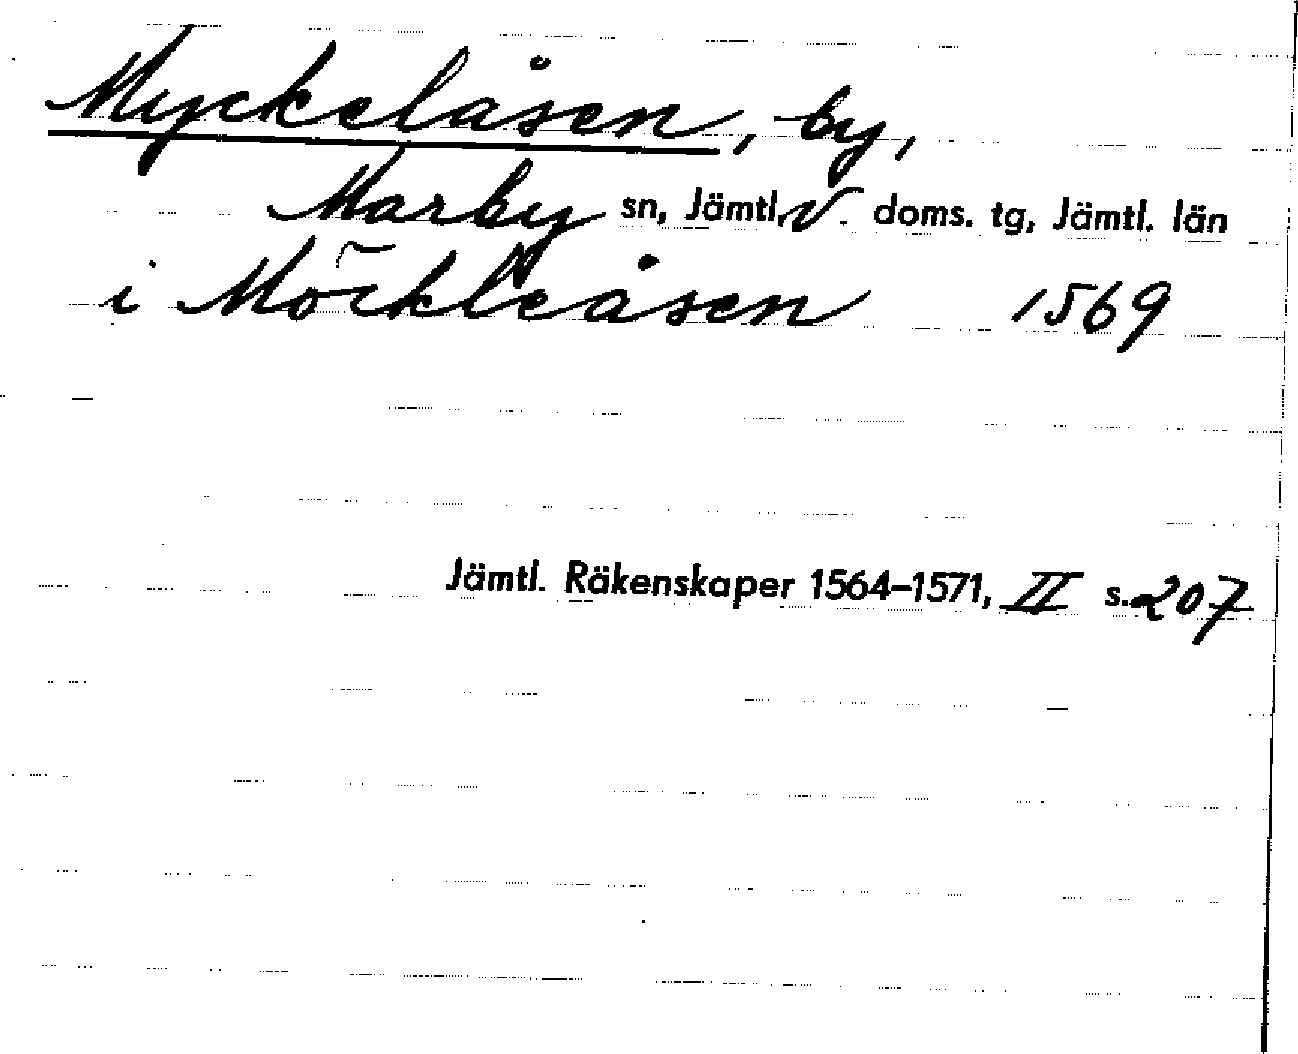 Myckelåsen, by,
Marby sn, Jämtl. V. doms. tg, Jämtl. län
i Möckleåsen 1569
Jämtl. Räkenskaper 1564–1571, II s. 207